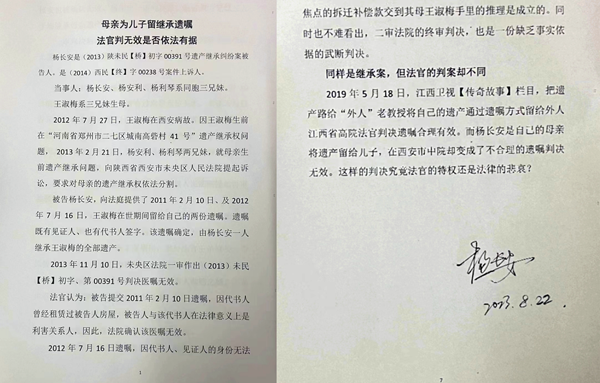 母亲为儿子留继承遗嘱
法官判无效是否依法有据
杨长安是（2013）陕未民【桥】初字 00391 号遗产继承纠纷案被
告人。是（2014）西民【终】字 00238 号案件上诉人。
当事人：杨长安、杨安利、杨利琴系同胞三兄妹。
王淑梅系三兄妹生母。
2012 年 7 月 27 日，王淑梅在西安病故。因王淑梅生前
在“河南省郑州市二七区城南高砦村 41 号”遗产继承权问
题， 2013 年 2 月 21 日，杨安利、杨利琴两兄妹，就母亲生
前遗产继承问题，向陕西省西安市未央区人民法院提起诉
讼，要求对母亲的遗产继承权依法分割。
被告杨长安，向法庭提供了 2011 年 2 月 10 日、及 2012
年 7 月 16 日，王淑梅在世期间留给自己的两份遗嘱。遗嘱
既有见证人、也有代书人签字。该遗嘱确定，由杨长安一人
继承王淑梅的全部遗产。
2013 年 11 月 10 日，未央区法院一审作出（2013）未民
【桥】初字、第 00391 号判决医嘱无效。
法官认为：被告提交 2011 年 2 月 10 日遗嘱，因代书人
曾经租赁过被告人房屋，被告人与该代书人在法律意义上是
利害关系人，因此，法院确认该医嘱无效。
2012 年 7 月 16 日遗嘱，因代书人、见证人的身份无法
1
焦点的拆迁补偿款交到其母王淑梅手里的推理是成立的。同
时也不难看出，二审法院的终审判决，也是一份缺乏事实依
据的武断判决。
同样是继承案，但法官的判案却不同
2019 年 5 月 18 日，江西卫视【传奇故事】栏目，把遗
产路给“外人”老教授将自己的遗产通过遗嘱方式留给外人
江西省高院法官判决遗嘱合理有效。而杨长安是自己的母亲
将遗产留给儿子，在西安市中院却变成了不合理的遗嘱判决
无效。这样的判决究竟法官的特权还是法律的悲哀？
杨长安
2023.8.22.
7